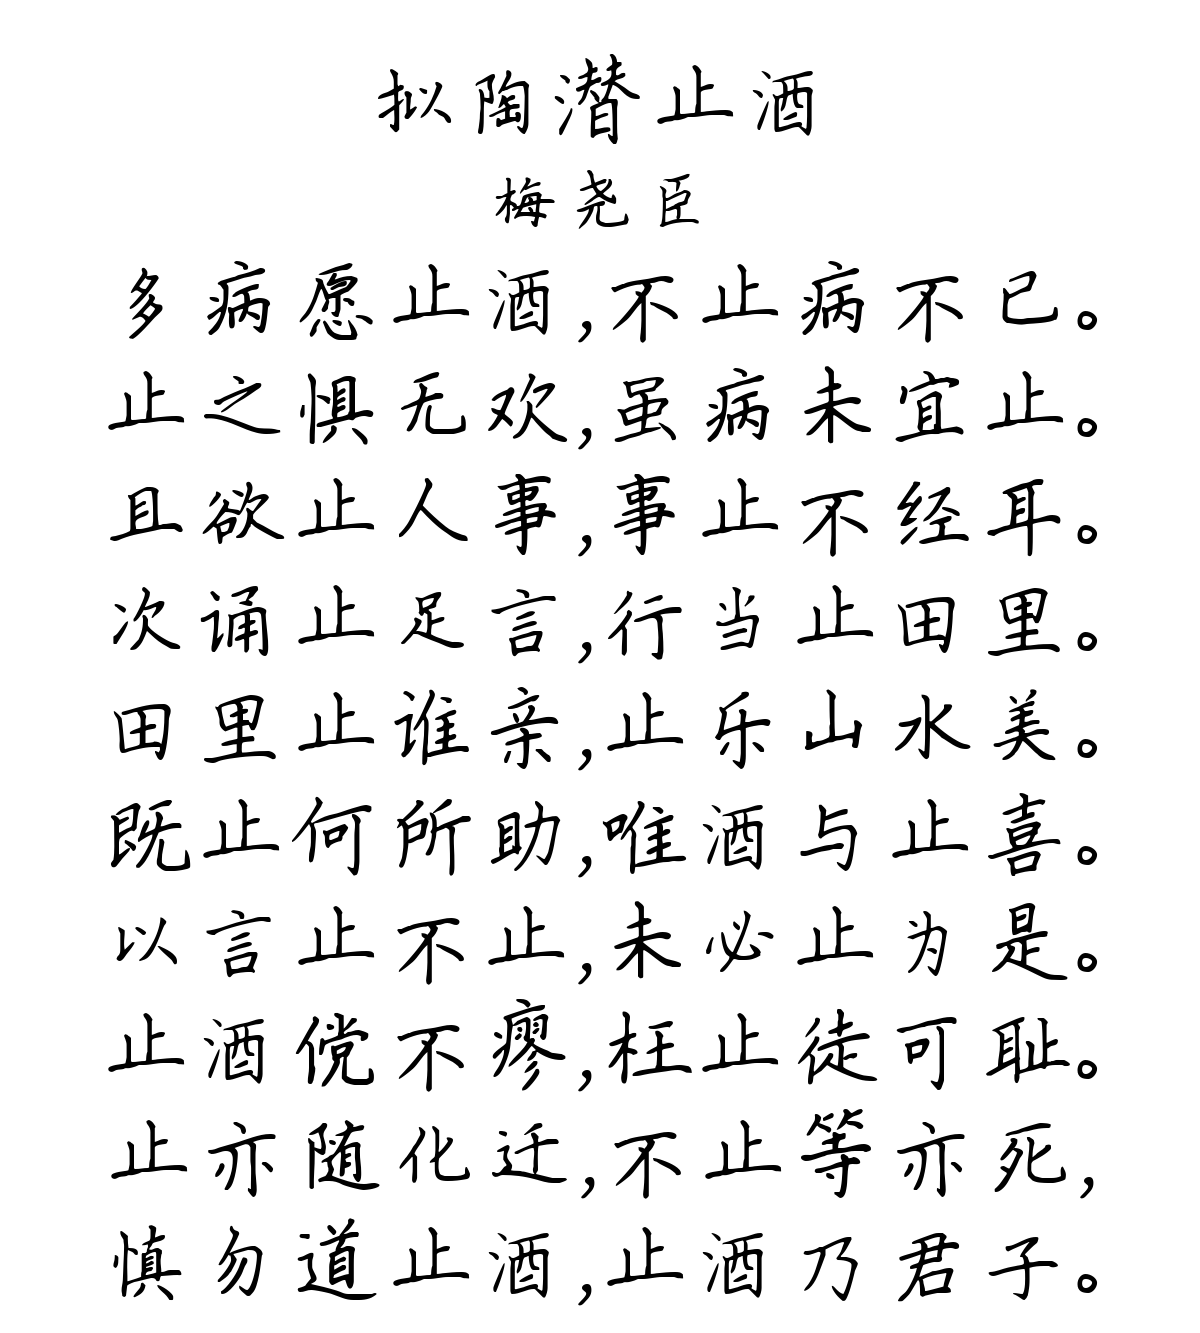 拟陶潜止酒
梅尧臣
多病愿止酒,不止病不已。
止之惧无欢,虽病未宜止。
且欲止人事,事止不经耳。
次诵止足言,行当止田里。
田里止谁亲,止乐山水美。
既止何所助,唯酒与止喜。
以言止不止,未必止为是。
止酒傥不瘳,枉止徒可耻。
止亦随化迁,不止等亦死,
慎勿道止酒,止酒乃君子。